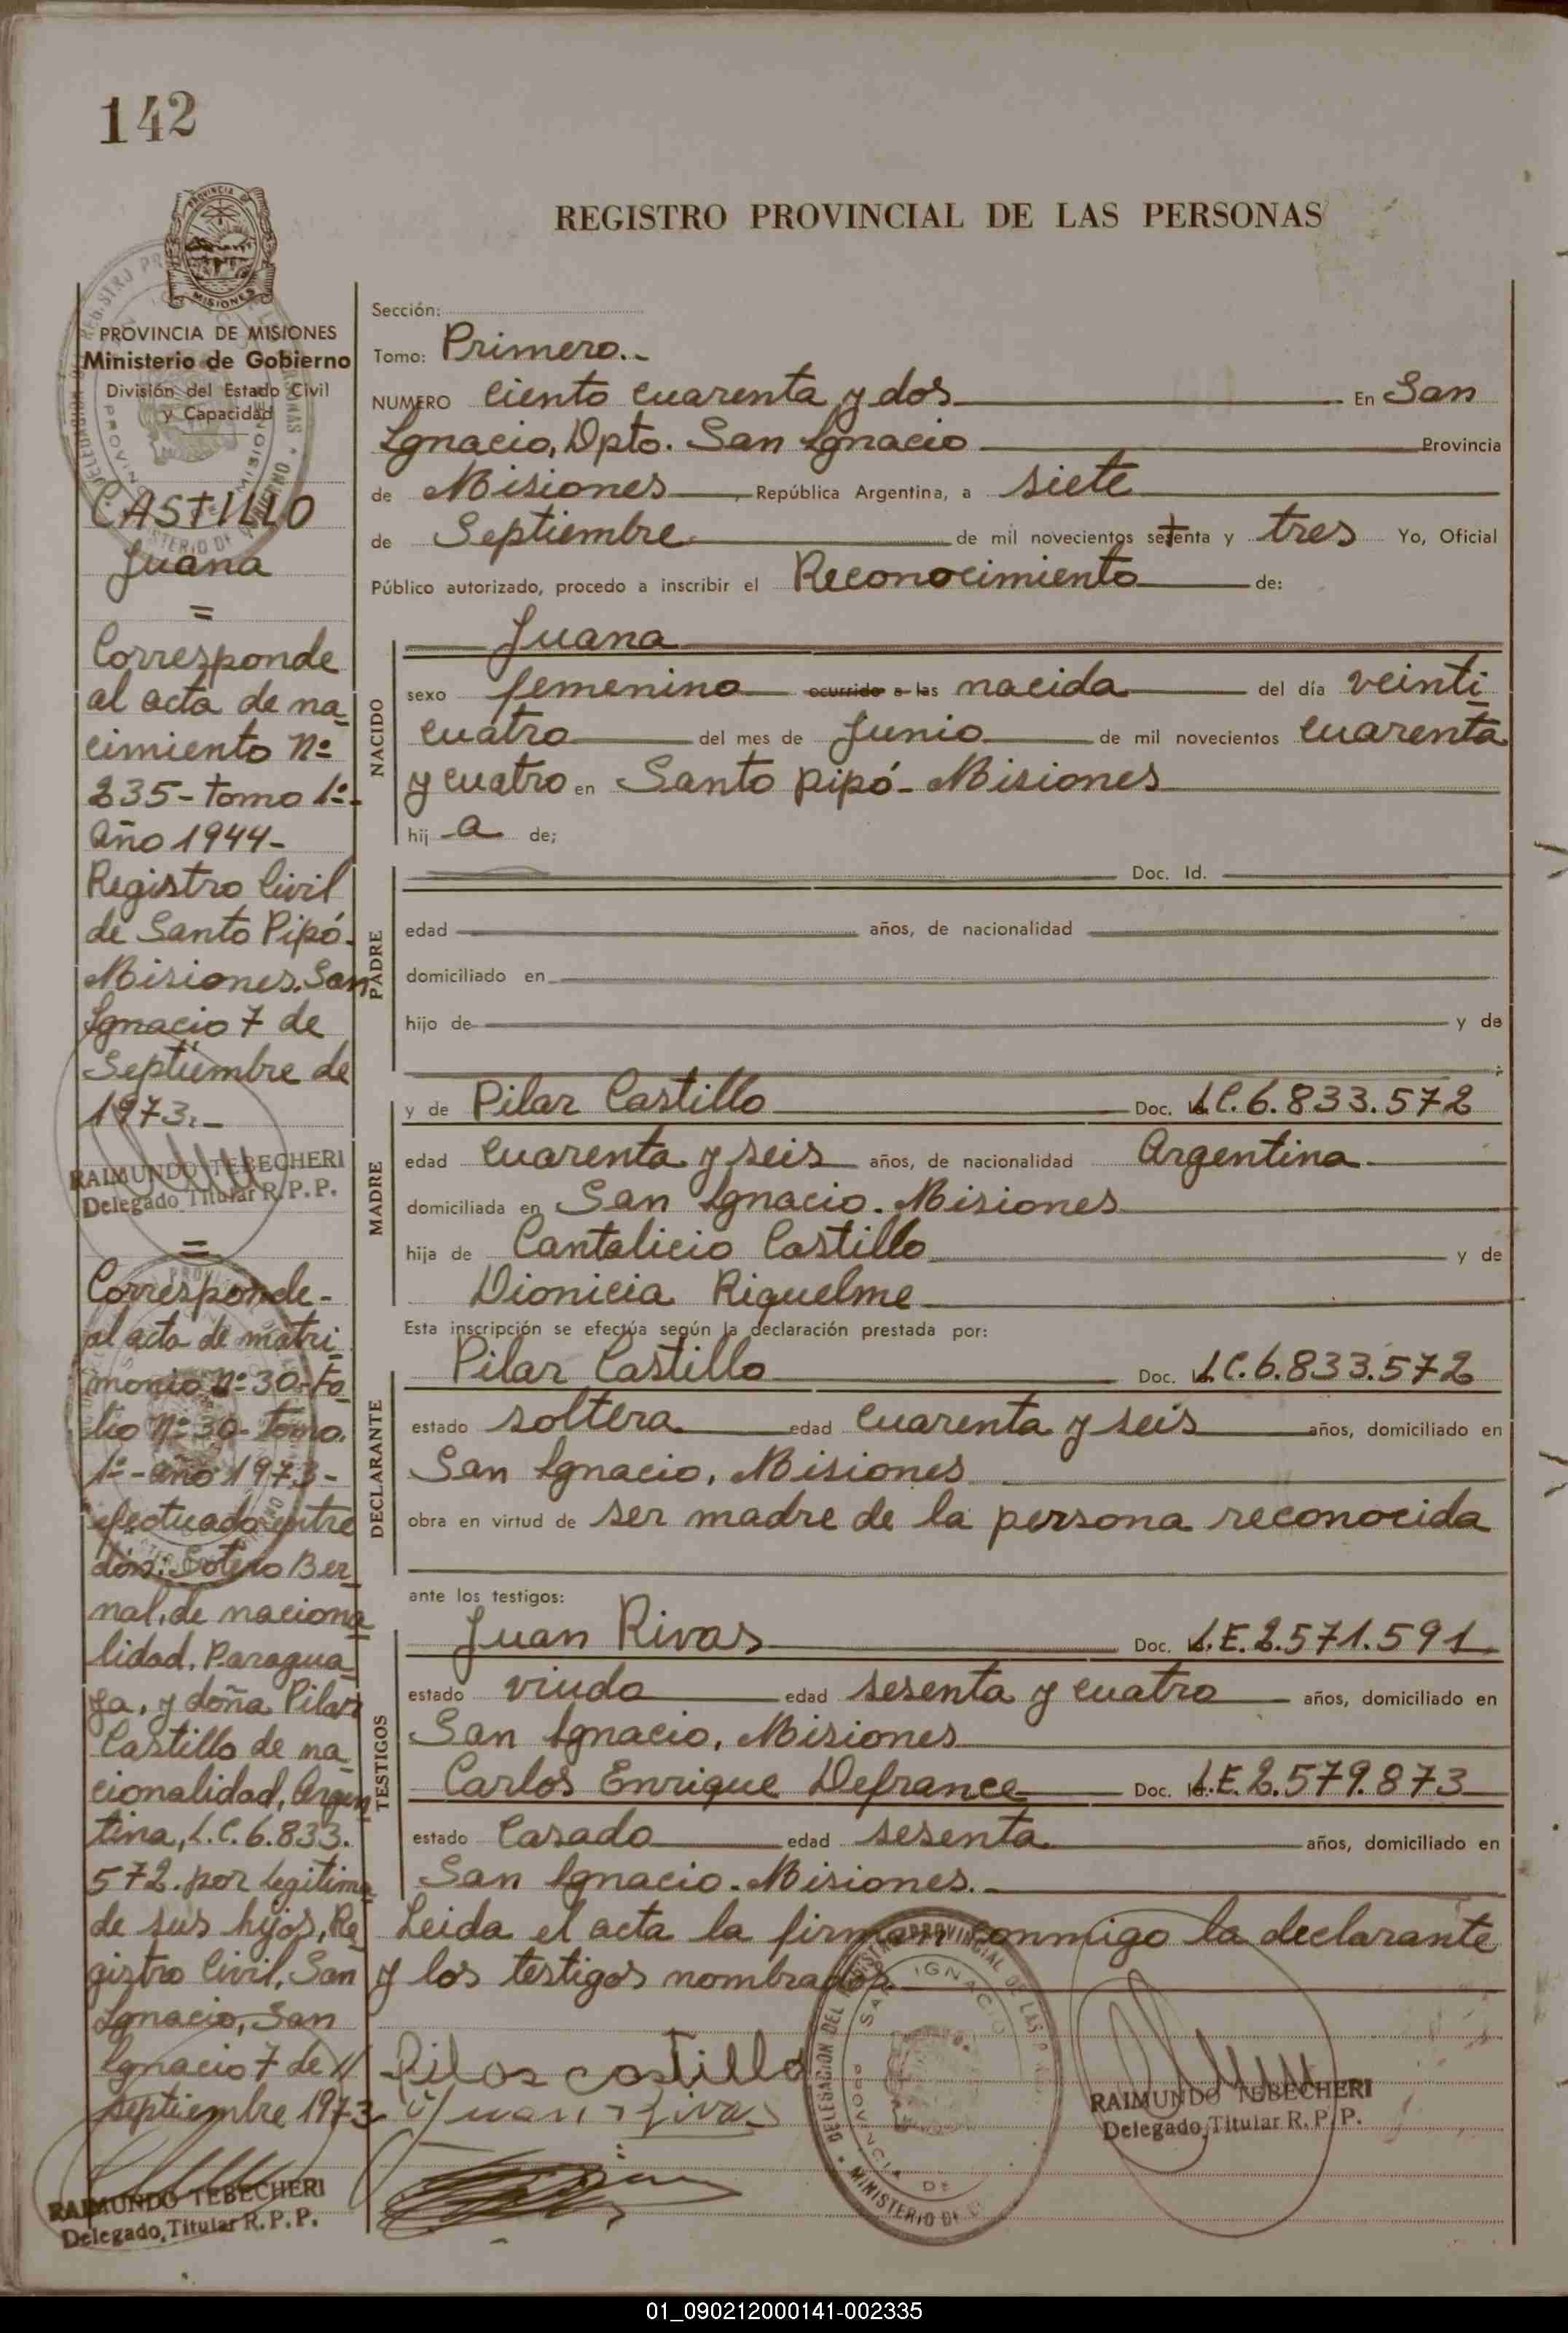 142
REGISTRO PROVINCIAL DE LAS PERSONAS
PROVINCIA DE
MISIONES
PROVINCIA DE MISIONES
Ministerio de Gobierno
División del Estado Civil
y Capacidad
CASTILLO
Juana
=
Corresponde
al acta de na
cimiento Nº
235- tomo 1º-
año 1944-
Registro Civil
de Santo Pipó.
Misiones. San
Ignacio 7 de
Septiembre de
1973.-
RAIMUNDO TEBECHERI
Delegado Titular R. P. P.
=
Corresponde-
al acta de matri
monio Nº 30- Fo
lio Nº 30- Tomo.
1º- año 1973-
efectuado entre
don: Sotero Ber
nal, de naciona
lidad, Paragua
ya, y doña Pilar
Castillo de na
cionalidad, Argen
tina, L.C. 6.833.
572. por legitima
de sus hijos, Re
gistro Civil, San
Ignacio, San
Ignacio 7 de
septiembre 1973
RAIMUNDO TEBECHERI
Delegado Titular R. P. P.
Sección:
Tomo: Primero.-
NUMERO Ciento cuarenta y dos En San
Ignacio, Dpto. San Ignacio Provincia
de Misiones, República Argentina, a siete
de Septiembre de mil novecientos setenta y tres Yo, Oficial
Público autorizado, procedo a inscribir el Reconocimiento de:
NACIDO
Juana
sexo femenino ocurrido a las nacida del día veinti
cuatro del mes de Junio de mil novecientos cuarenta
y cuatro en Santo pipó- Misiones
hij -a de;
PADRE
Doc. Id.
edad años, de nacionalidad
domiciliado en
hijo de y de
;
MADRE
y de Pilar Castillo Doc. L.C. 6.833.572
edad cuarenta y seis años, de nacionalidad Argentina
domiciliada en San Ignacio. Misiones
hija de Cantalicio Castillo y de
Dionicia Riquelme
Esta inscripción se efectúa según la declaración prestada por:
DECLARANTE
Pilar Castillo Doc. L.C. 6.833.572
estado soltera edad cuarenta y seis años, domiciliado en
San Ignacio, Misiones
obra en virtud de ser madre de la persona reconocida
ante los testigos:
TESTIGOS
Juan Rivas Doc. L.E. 2.571.591
estado viudo edad sesenta y cuatro años, domiciliado en
San Ignacio, Misiones
Carlos Enrique Defrance Doc. Id. L.E. 2.579.873
estado Casado edad sesenta años, domiciliado en
San Ignacio. Misiones.-
Leida el acta la firman conmigo la declarante
y los testigos nombrados
Pilar castillo
Juan Rivas
DELEGACION DEL REGISTRO PROVINCIAL DE LAS
SAN IGNACIO
PROVINCIA DE
MINISTERIO DE
RAIMUNDO TEBECHERI
Delegado Titular R. P. P.
01_090212000141-002335